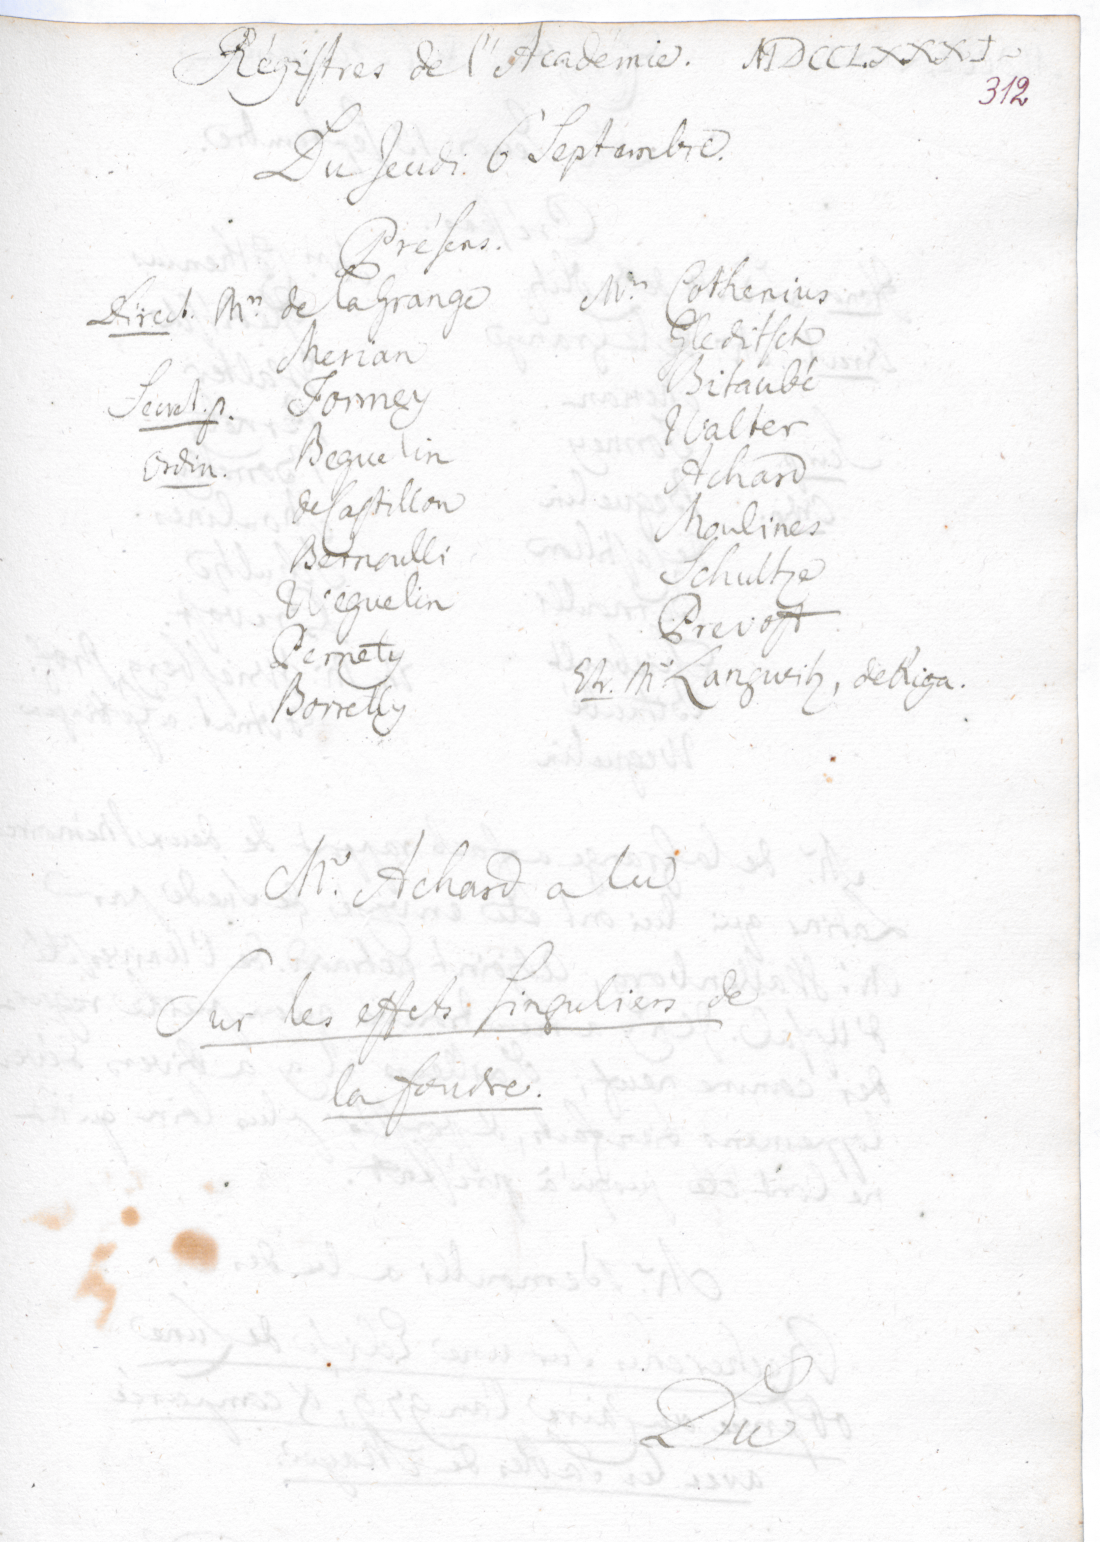 Régistres de l'Académie. MDCCLXXXI
312
Du Jeudi. 6 Septembre.
Présens.
Direct. Mrs de la Grange
Merian
Secret. p. Formey
Ordin. Beguelin
de Castillon
Bernoulli
Weguelin
Pernety
Borrelly
Mrs Cothenius
Gleditsch
Bitaubé
Walter
Achard
Moulines
Schultze
Prevost
Etr. Mr Langwitz, de Riga.
Mr. Achard a lu
Sur les effets singuliers de
la foudre.
Du